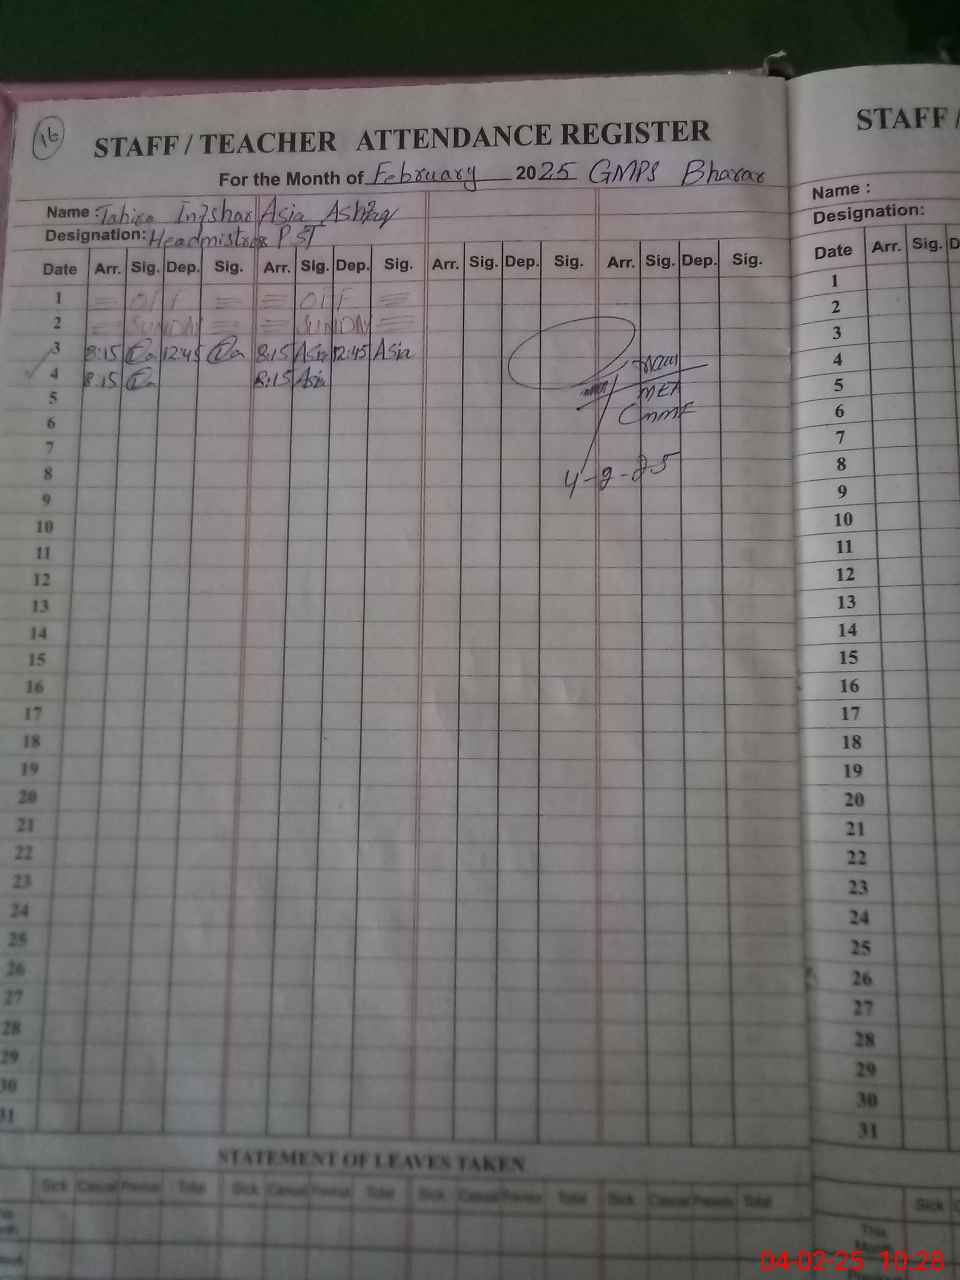 16
STAFF / TEACHER ATTENDANCE REGISTER
For the Month of February 2025 GMPS Bharar
Name : Tahira Asia Ashfaq
Designation: Headmistress PST
Date Arr. Sig. Dep. Sig. Arr. Sig. Dep. Sig. Arr. Sig. Dep. Sig. Arr. Sig. Dep. Sig.
1 OFF OFF
2 SUNDAY SUNDAY
3 8:15 12:45 8:15 Asia 12:45 Asia
4 8:15 8:15 Asia
MEA
4-2-25
5
6
7
8
9
10
11
12
13
14
15
16
17
18
19
20
21
22
23
24
25
26
27
28
29
30
31
STATEMENT OF LEAVES TAKEN
Sick Casual Previous Total Sick Casual Previous Total Sick Casual Previous Total Sick Casual Previous Total
STAFF /
Name :
Designation:
Date Arr. Sig. D
1
2
3
4
5
6
7
8
9
10
11
12
13
14
15
16
17
18
19
20
21
22
23
24
25
26
27
28
29
30
31
Sick
This
04-02-25 10:28